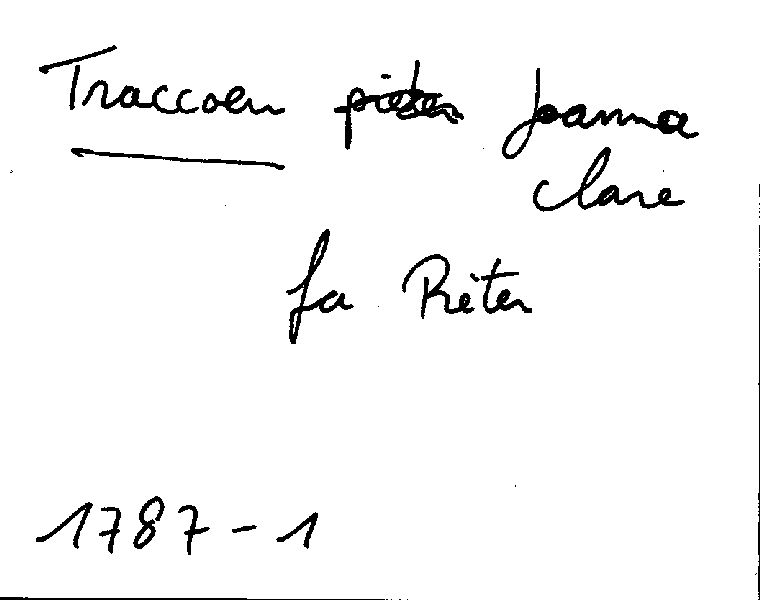 Traccoen pieter Joanna
Clare
fa Pieter
1787-1